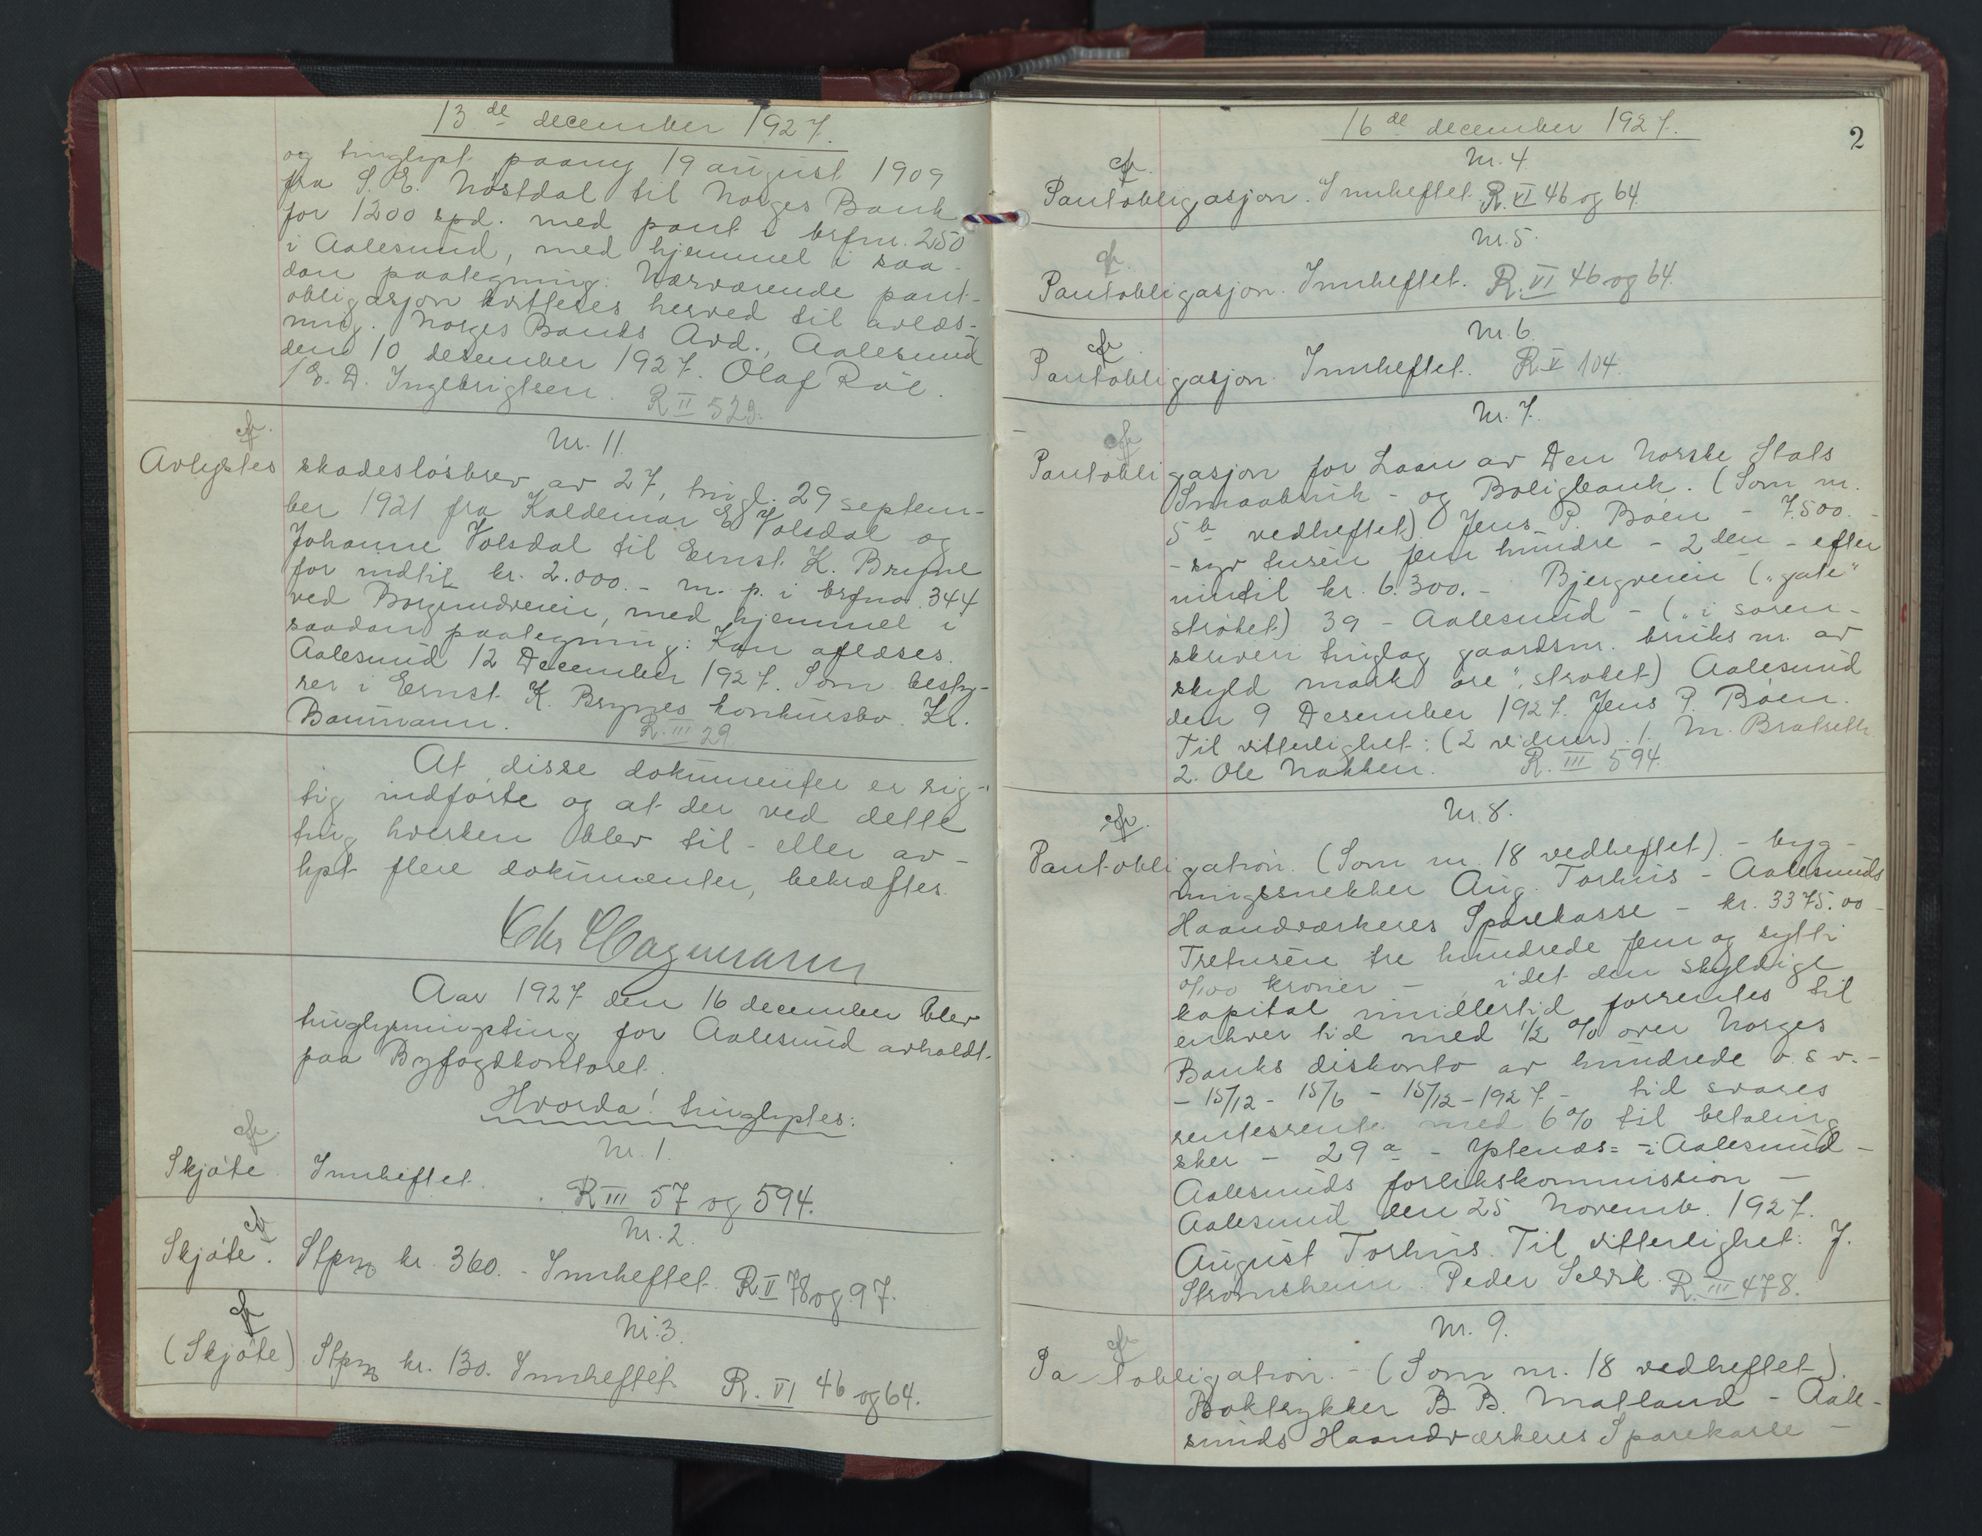 13de december 1927.
og tinglyst paany 19 august 1909
fra S. E. Nøstdal til Norges Bank
for 1200 spd. med pant i brfnr. 250
i Aalesund, med hjemmel i saa-
dan paategning: Nærværende pant-
obligasjon kvitteres herved til avlæs-
ning. Norges Banks Avd., Aalesund
den 10 desember 1927. Olaf Røe.
/E. D. Ingebrigtsen. R II 529.
cfr.
Nr. 11.
Avlystes skadesløsbrev av 27, tingl. 29 septem-
ber 1921 fra Valdemar E Volsdal og
Johanne Volsdal til Ernst K. Bryne
for indtil kr. 2.000.- m. p. i brfno. 344
ved Borgundveien, med hjemmel i
saadan paategning: Kan aflæses.
Aalesund 12 December 1927. Som besty-
rer i Ernst K. Brynes konkursbo. Kr.
Baumann. R. III 29.
At disse dokumenter er rig-
tig indførte og at der ved dette
ting hverken blev til- eller av-
lyst flere dokumenter, bekræftes.
Chr Hagemann
Aar 1927 den 16 december blev
tinglysningsting for Aalesund avholdt
paa Byfogdkontoret.
Hvorda! tinglystes:
cfr.
Nr. 1.
Skjøte. Innheftet. R III 57 og 594.
cfr
Nr. 2.
Skjøte. Stpm kr. 360.- Innheftet. R II 78 og 97.
cfr
Nr. 3.
(Skjøte) Stpm kr. 130. Innheftet. R. VI 46 og 64.
2
16de december 1927.
cfr.
Nr. 4
Pantobligasjon. Innheftet. R. VI 46 og 64.
cfr.
Nr. 5.
Pantobligasjon. Innheftet. R. VI 46 og 64.
cfr.
Nr. 6
Pantobligasjon. Innheftet. R V 104.
cfr
Nr. 7.
Pantobligasjon for Laan av Den Norske Stats
Smaabruk- og Boligbank. (Som nr.
5 b vedheftet) Jens P. Bøen - 7.500.-
- syv tusen fem hundre - 2den - efter
inntil kr. 6.300.- Bjergveien („gate"
strøket) 39 - Aalesund - („i soren-
skriveri tinglag gaardsnr. bruks nr. av
skyld mark øre", strøket) Aalesund
den 9 Desember 1927. Jens P. Bøen.
Til vitterlighet: (2 vidner). 1. M. Bratseth
2. Ole Nakken. R. III 594.
cfr.
Nr. 8.
Pantobligation. (Som nr. 18 vedheftet). - byg-
ningssnekker Aug. Torhus - Aalesunds
Haandværkeres Sparekasse - kr. 3375.00 -
Tretusen tre hundrede fem og sytti
0/100 kroner - idet den skyldige
kapital imidlertid forrentes til
enhver tid med 1/2 % over Norges
Banks diskonto av hundrede o. s. v. -
- 15/12 - 15/6 - 15/12 - 1927 - tid svares
rentesrente med 6% til betaling
sker - 29 a - Ystenæs = i Aalesund -
Aalesunds forlikskommission -
Aalesund den 25 Novemb. 1927.
August Torhus. Til vitterlighet: J.
Strømsheim. Peder Selvik. R. III 478.
cfr
Nr. 9.
Pantobligation. - (Som nr. 18 vedheftet).
Boktrykker B. B. Matland - Aale-
sunds Haandværkeres Sparekasse -